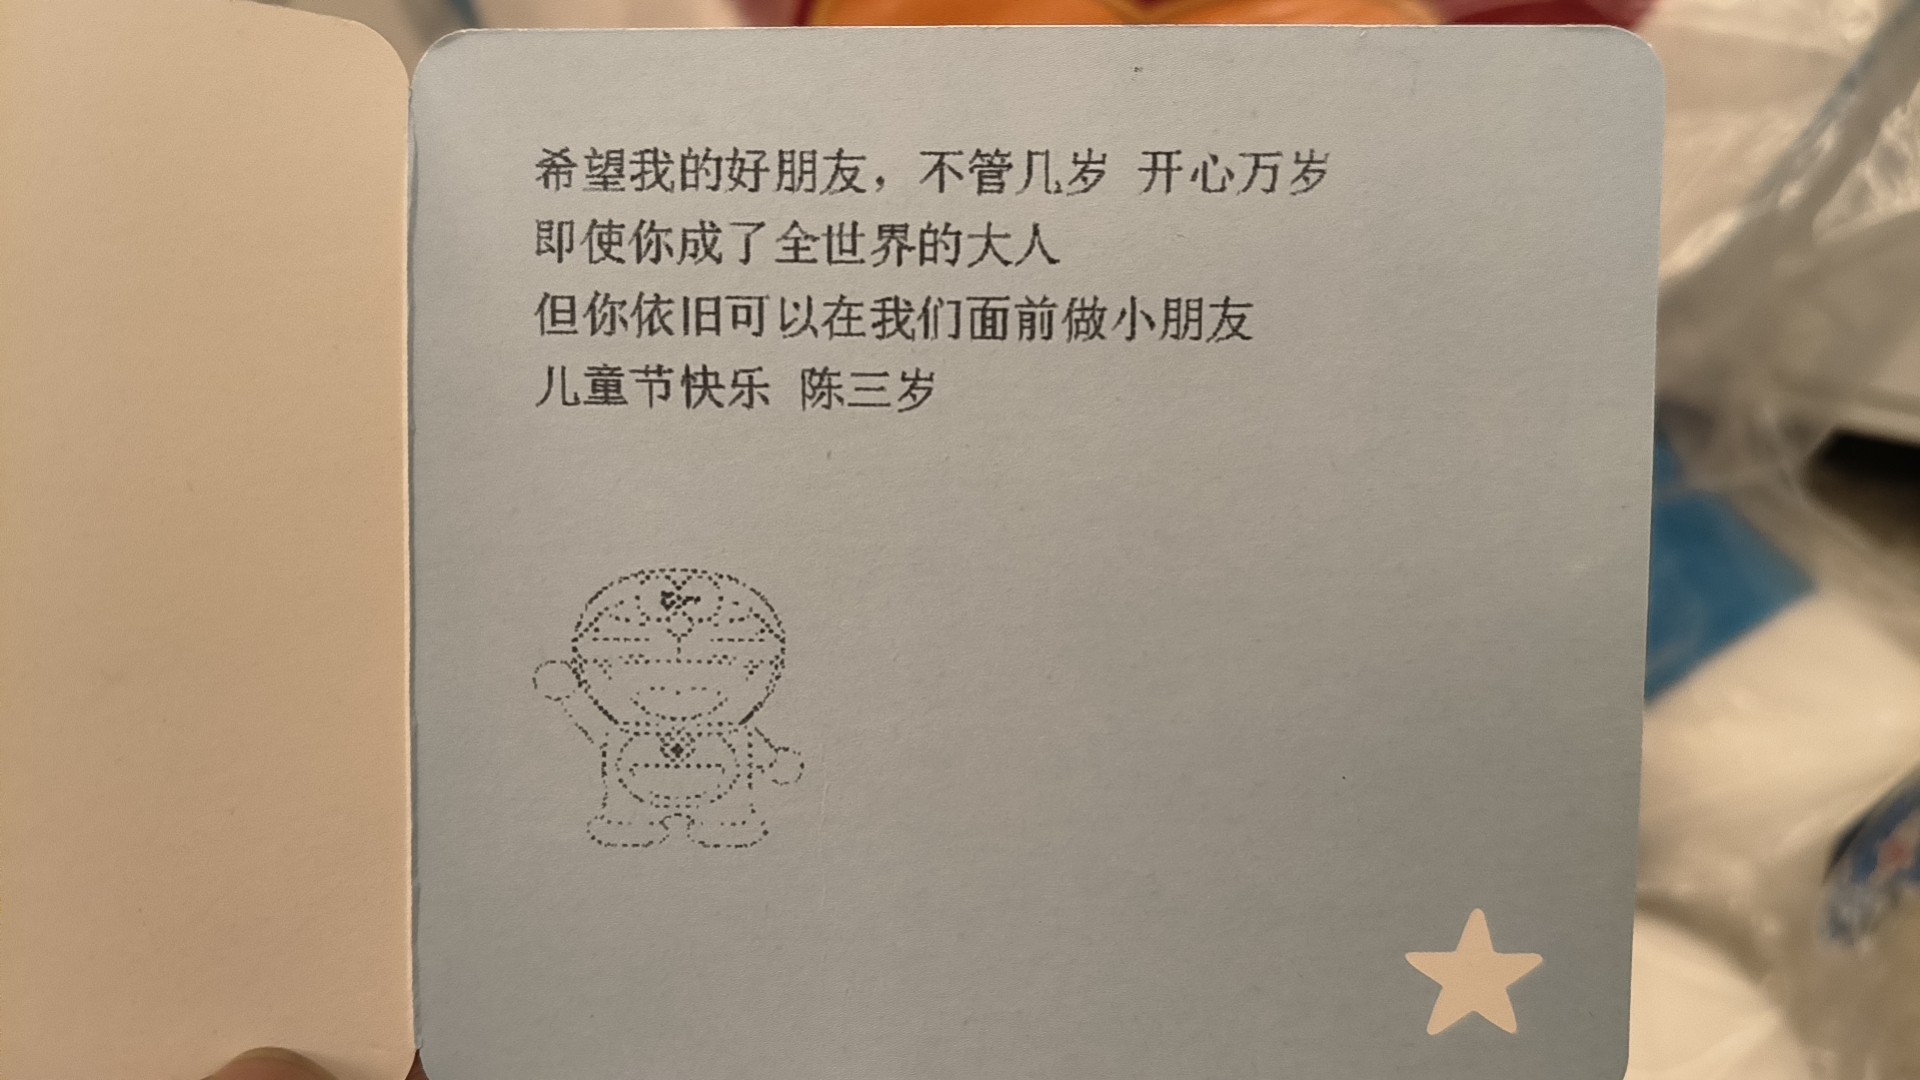 希望我的好朋友，不管几岁 开心万岁
即使你成了全世界的大人
但你依旧可以在我们面前做小朋友
儿童节快乐 陈三岁